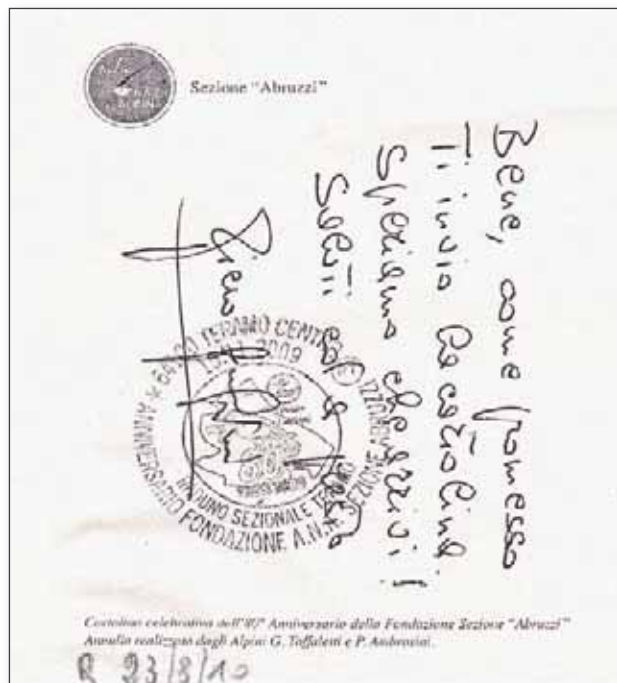 Sezione "Abruzzi"
Bene, come promesso
Ti invio la cartolina
Speriamo che arrivi!
Saluti e a presto
64100 TERAMO CENTRO
2009
RADUNO SEZIONALE TERAMO
ANNIVERSARIO FONDAZIONE A.N.A. SEZIONE ABRUZZI
Cartolina celebrativa dell'80° Anniversario della Fondazione Sezione "Abruzzi"
Annullo realizzato dagli Alpini G. Toffoletti e P. Ambrosini.
R 23/8/10